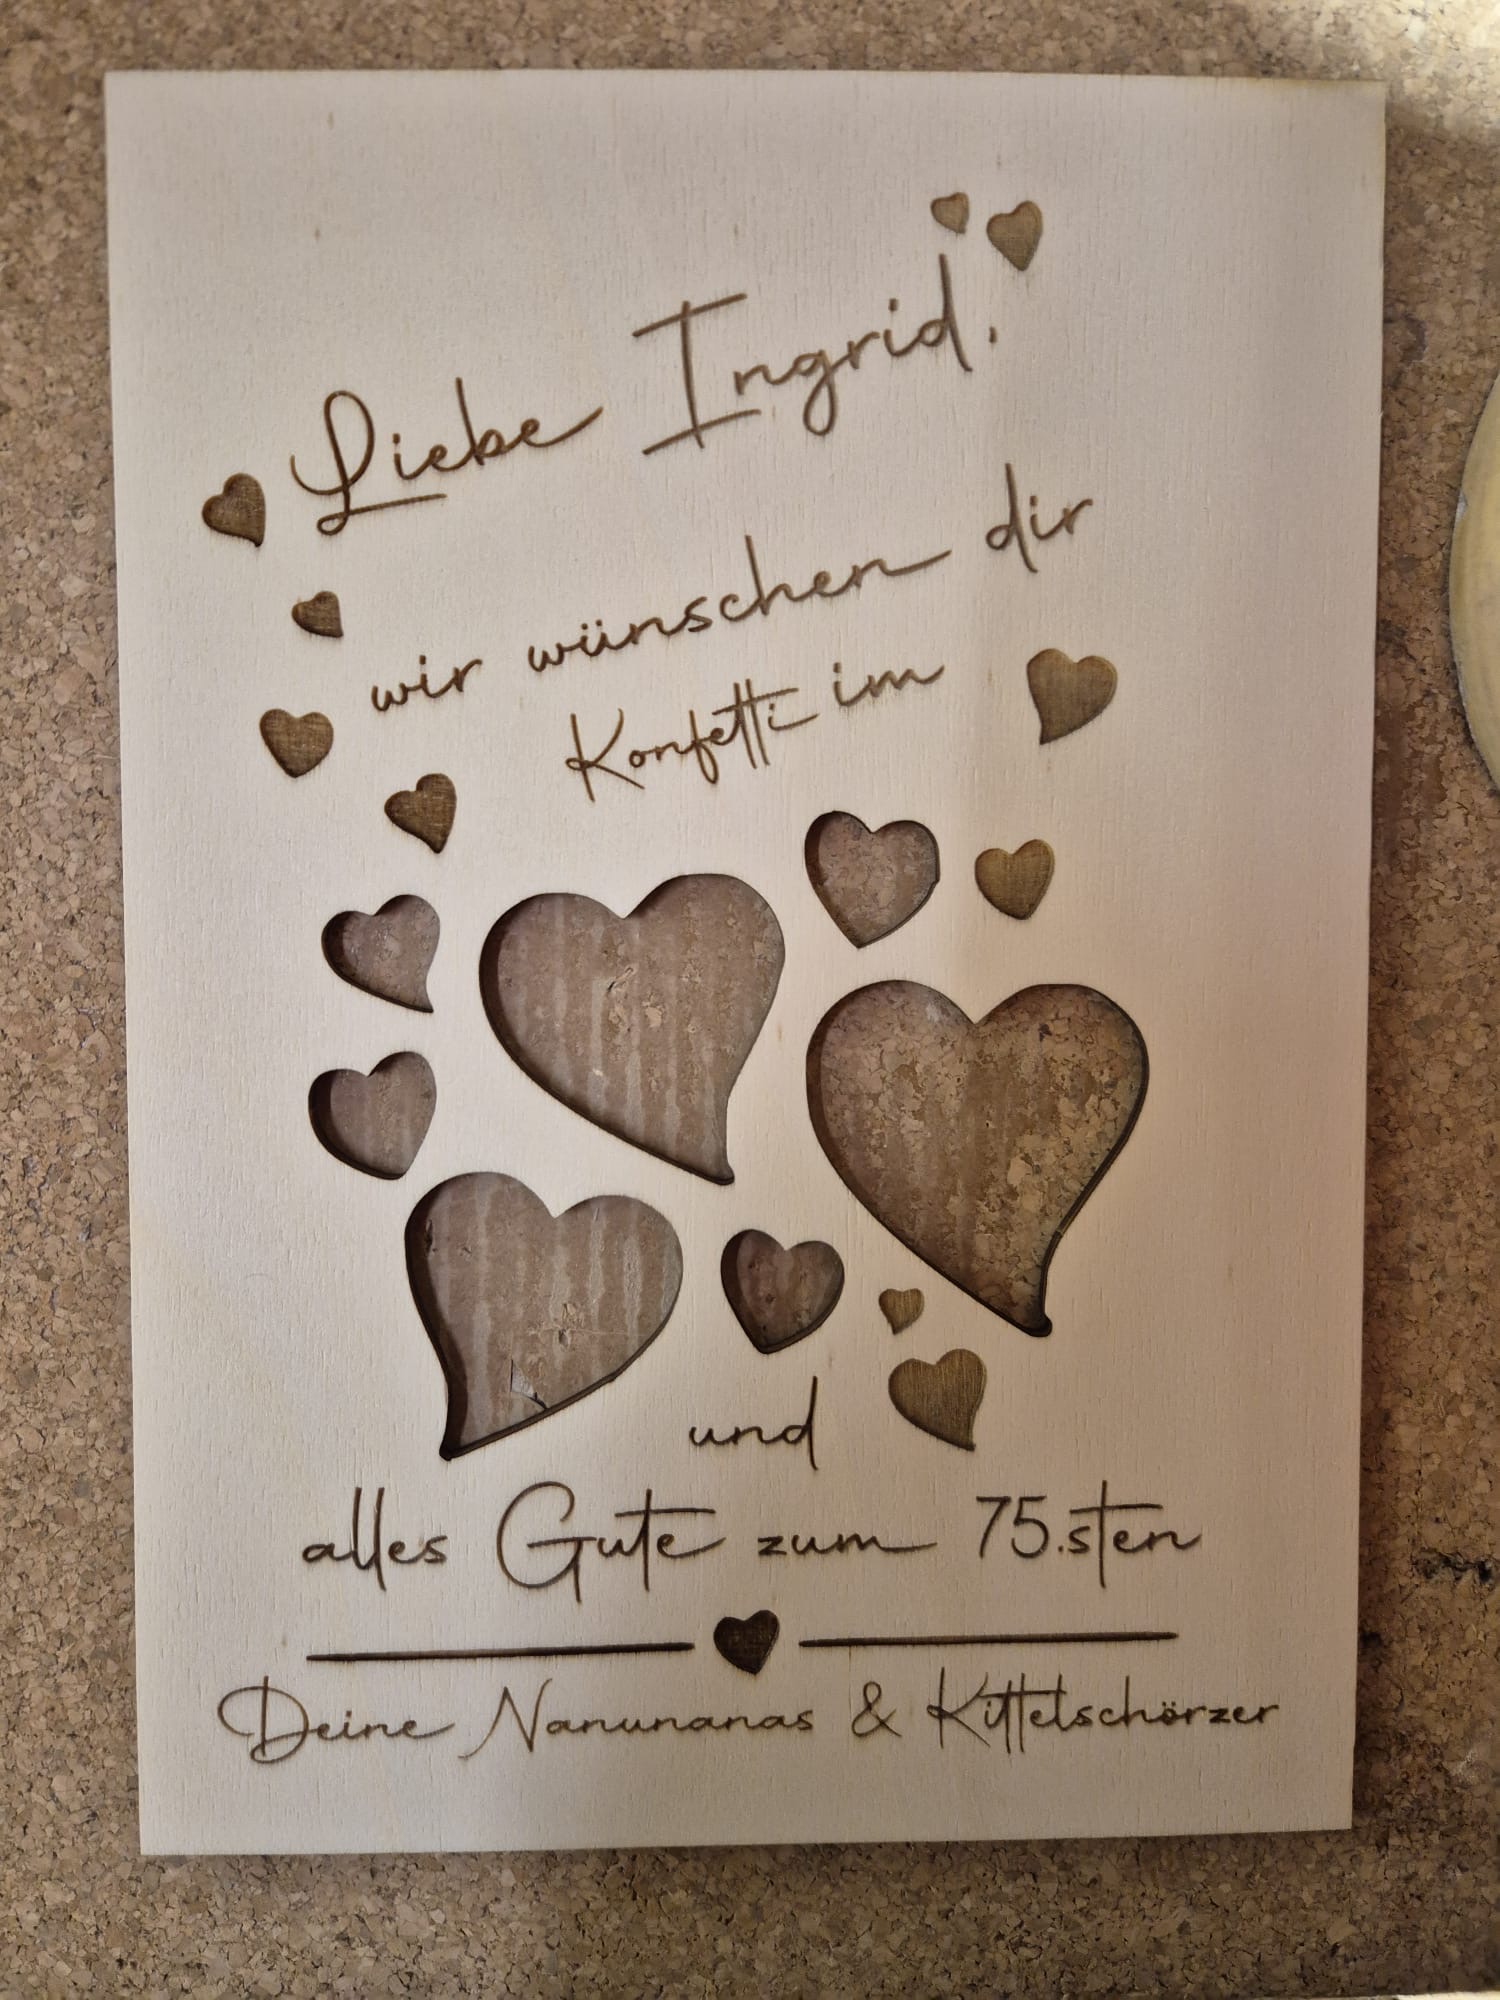 Liebe Ingrid,
wir wünschen dir
Konfetti im
und
alles Gute zum 75.sten
Deine Nanunanas & Kittelschörzer